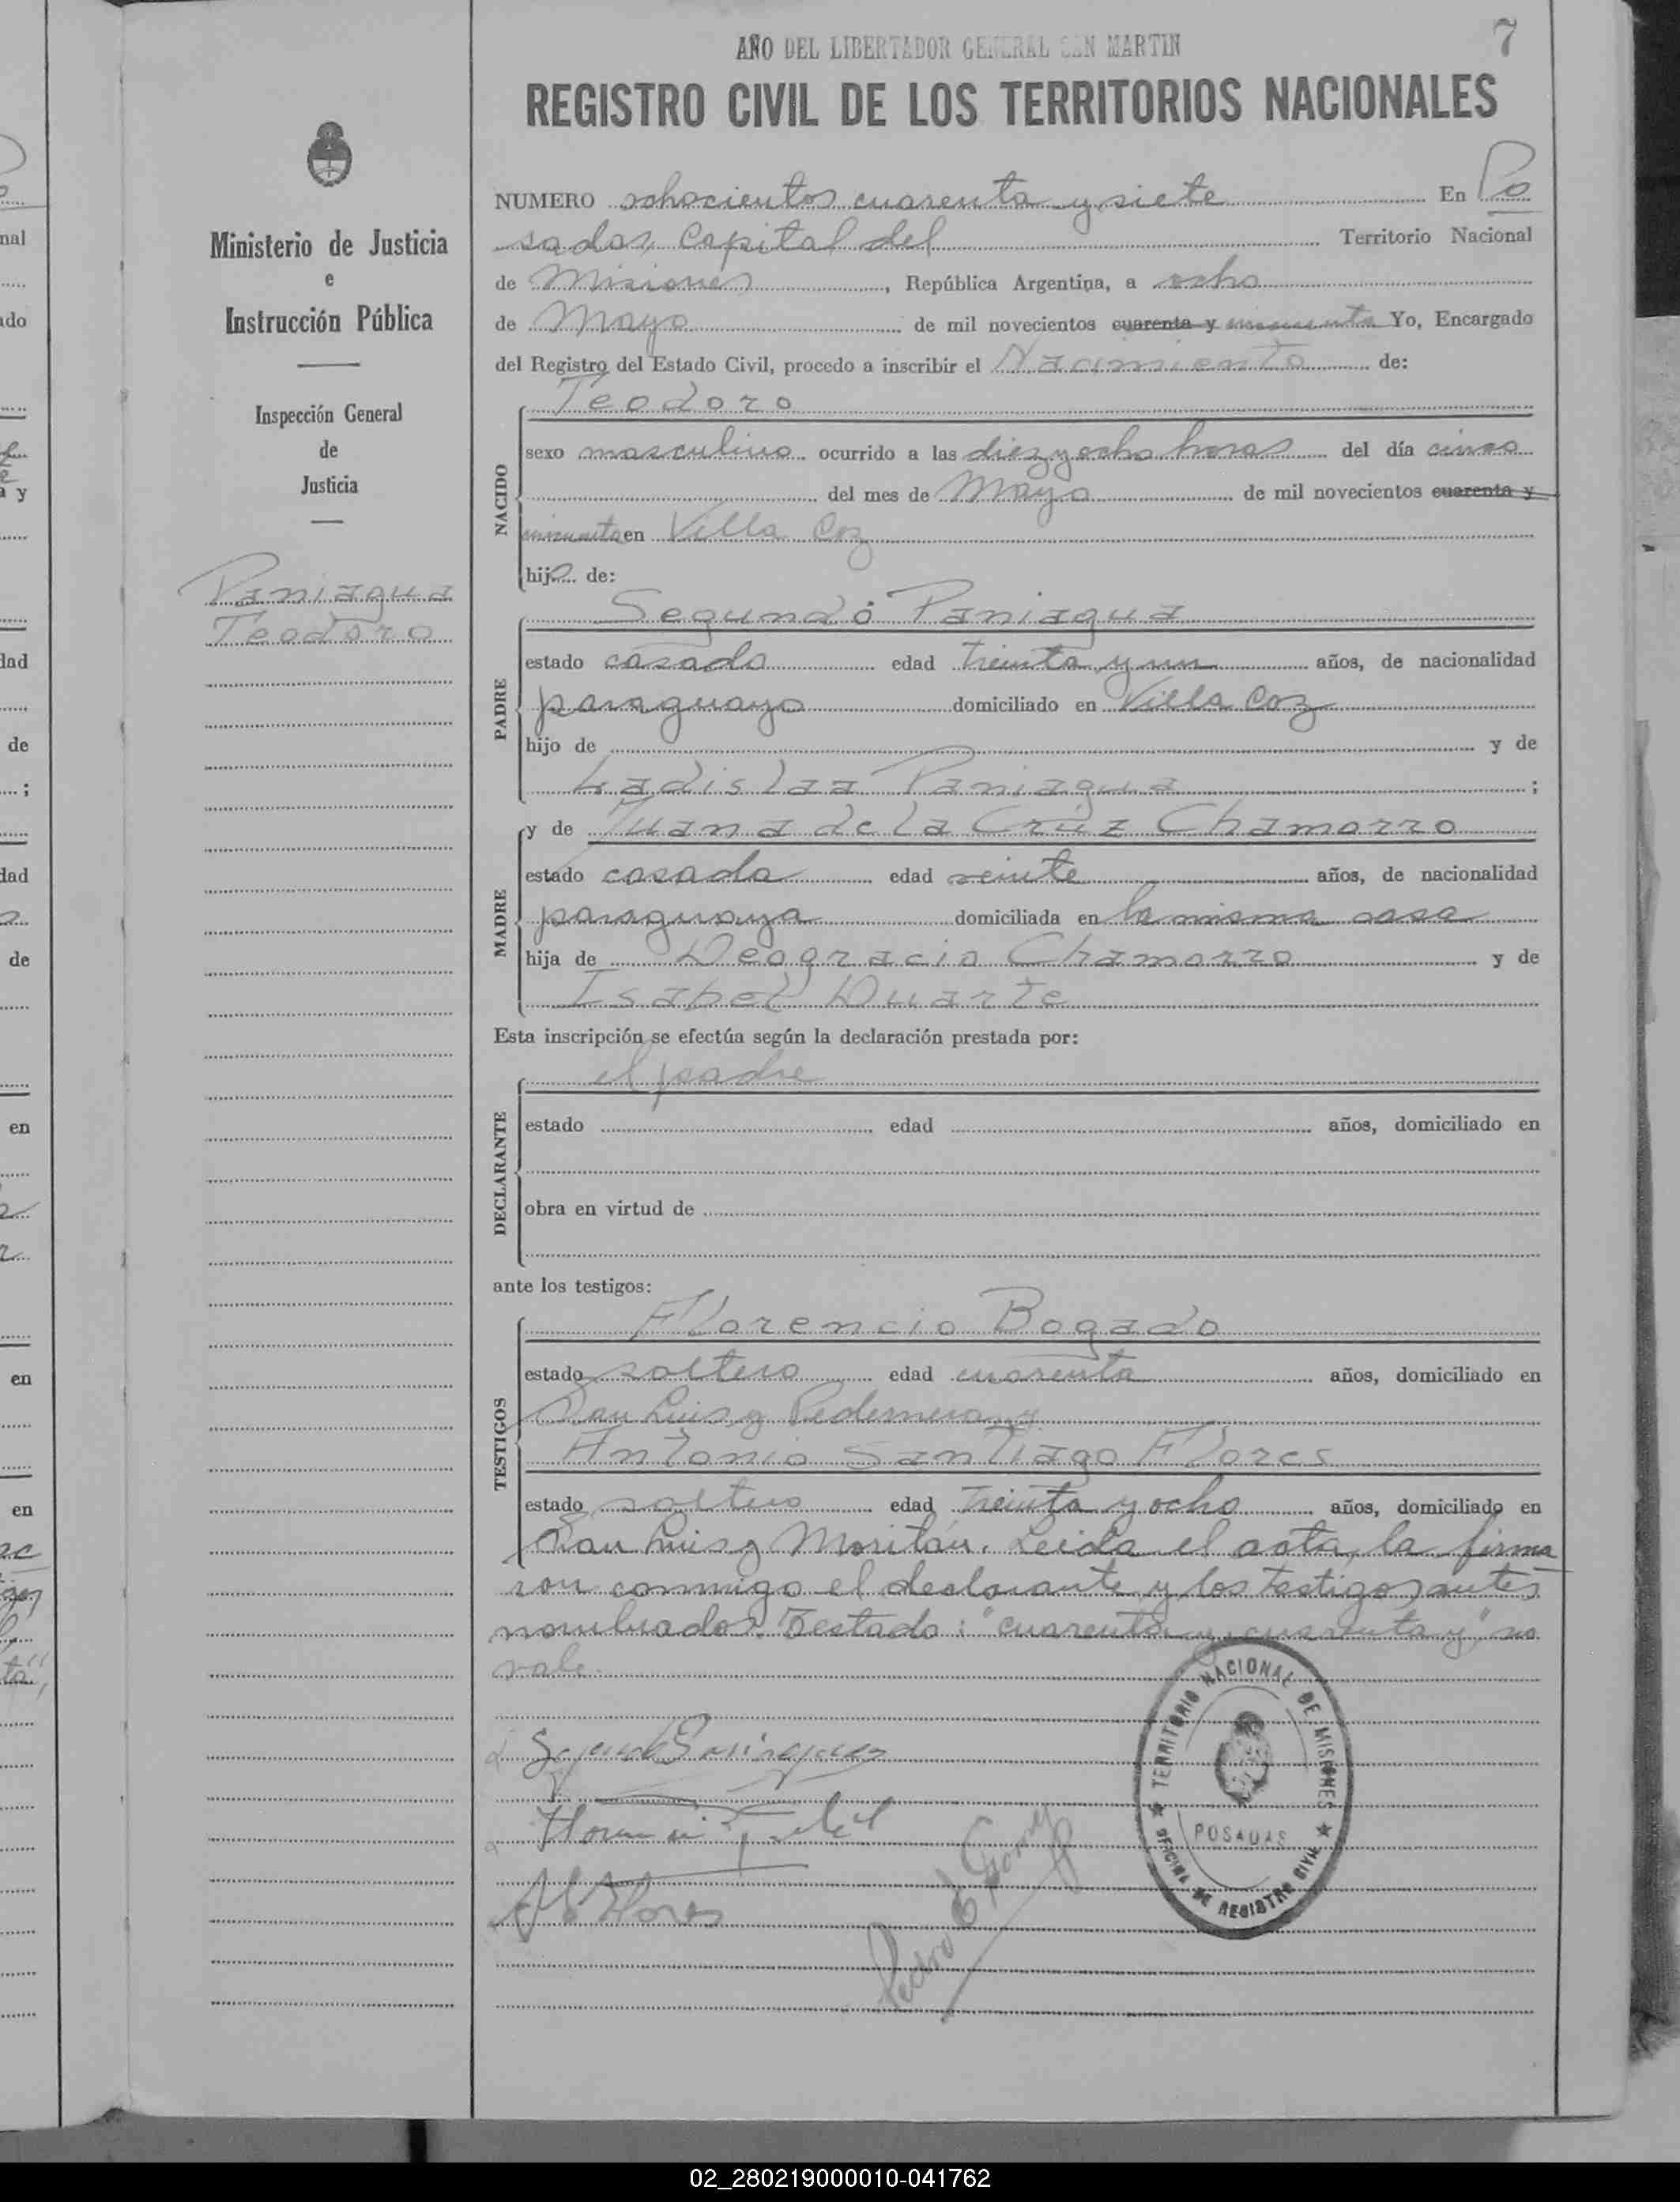 7
AÑO DEL LIBERTADOR GENERAL SAN MARTIN
REGISTRO CIVIL DE LOS TERRITORIOS NACIONALES
Ministerio de Justicia
e
Instrucción Pública
Inspección General
de
Justicia
Paniagua
Teodoro
NUMERO ochocientos cuarenta y siete En Po
sadas, Capital del Territorio Nacional
de Misiones, República Argentina, a ocho
de Mayo de mil novecientos cuarenta y cincuenta Yo, Encargado
del Registro del Estado Civil, procedo a inscribir el Nacimiento de:
Teodoro
NACIDO
sexo masculino ocurrido a las diez y ocho horas del día cinco
del mes de Mayo de mil novecientos cuarenta y
cincuenta en Villa Coz
hijo de:
Segundo Paniagua
PADRE
estado casado edad treinta y un años, de nacionalidad
paraguayo domiciliado en Villa Coz
hijo de y de
Ladislaa Paniagua ;
y de Juana de la Cruz Chamorro
MADRE
estado casada edad veinte años, de nacionalidad
paraguaya domiciliada en la misma casa
hija de Deogracio Chamorro y de
Isabel Duarte
Esta inscripción se efectúa según la declaración prestada por:
el padre
DECLARANTE
estado edad años, domiciliado en
obra en virtud de
ante los testigos:
Florencio Bogado
TESTIGOS
estado soltero edad cuarenta años, domiciliado en
San Luis y Pedernera, y
Antonio Santiago Flores
estado soltero edad treinta y ocho años, domiciliado en
San Luis y Moritán. Leida el acta, la firma
ron conmigo el declarante y los testigos antes
nombrados. Testado: "cuarenta y, cuarenta y" no
vale.
Segundo Paniagua
A S Flores
Pedro E Gomez
TERRITORIO NACIONAL DE MISIONES
POSADAS
OFICINA DE REGISTRO CIVIL
nal
ado
a y
dad
de
;
dad
de
en
en
en
02_280219000010-041762